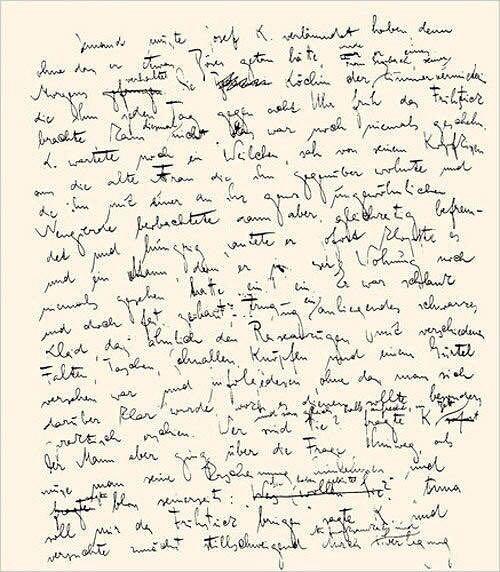 Jemand musste Josef K. verläumdet haben, denn
ohne dass er etwas Böses getan hätte, wurde er eines
Morgens verhaftet Die Köchin der Zimmervermieterin
die ihm jeden Tag gegen acht Uhr früh das Frühstück
brachte kam diesmal nicht. Das war noch niemals geschehn.
K. wartete noch ein Weilchen, sah von seinem Kopfkissen
aus die alte Frau die ihm gegenüber wohnte und
die ihn mit einer an ihr ganz ungewöhnlichen
Neugierde beobachtete dann aber, gleichzeitig befrem-
det und hungrig, läutete er. Sofort klopfte es
und ein Mann, den er in dieser Wohnung noch
niemals gesehen hatte trat ein. Er war schlank
und doch fest gebaut, er trug ein anliegendes schwarzes
Kleid, das ähnlich den Reiseanzügen mit verschiedenen
Falten, Taschen, Schnallen, Knöpfen und einem Gürtel
versehen war und infolgedessen, ohne dass man sich
darüber klar wurde, wozu es dienen sollte, besonders
praktisch erschien. Wer sind Sie? fragte K. und sass gleich halb aufrecht
Der Mann aber ging über die Frage hinweg, als
müsse man seine Erscheinung hinnehmen und
sagte bloss seinerseits: Sie haben geläutet? Anna
soll mir das Frühstück bringen sagte K. und
versuchte zunächst stillschweigend durch Aufmerksamkeit und Überlegung